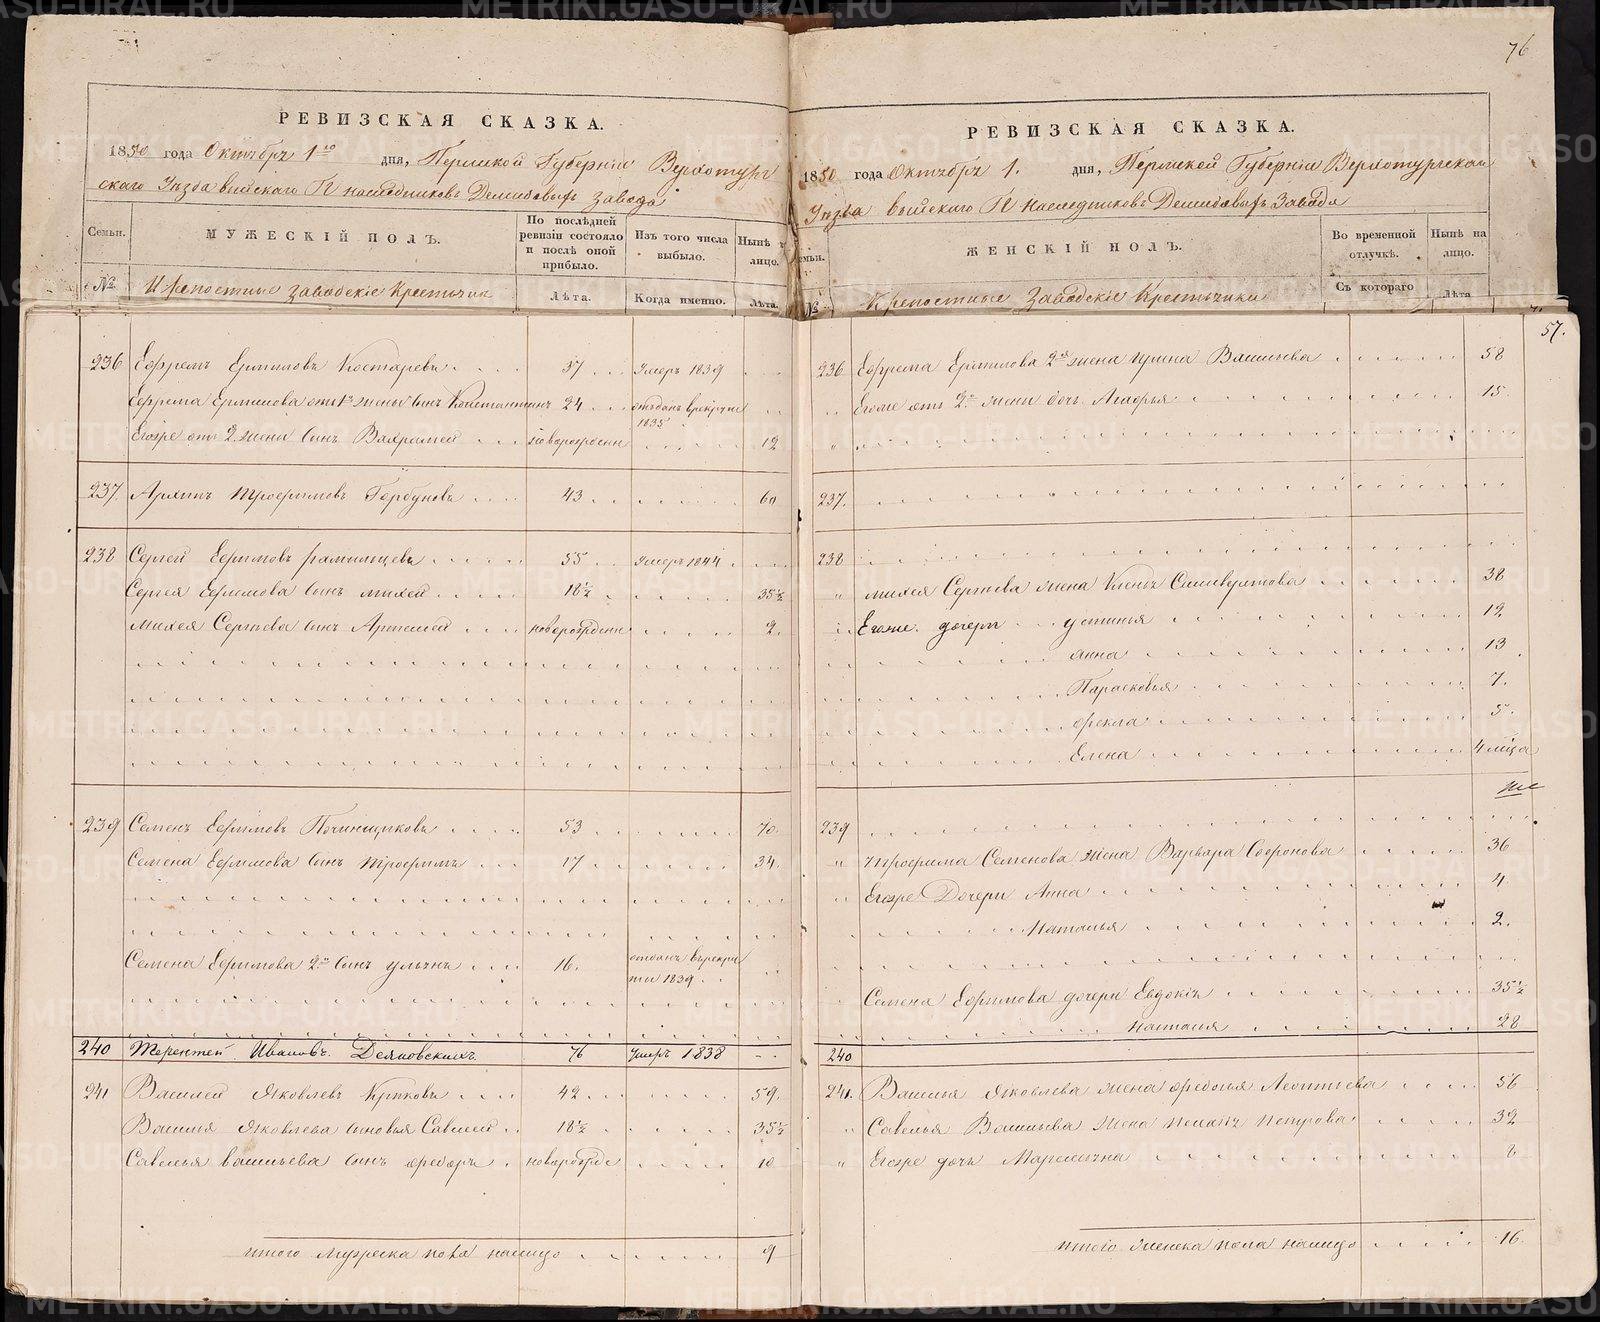 76
РЕВИЗСКАЯ СКАЗКА.
1850 года Октября 1го дня, Пермской Губернiи Верхотур
скаго Уѣзда выйскаго Гг наслѣдниковъ Демидовыхъ завода
Семьи. МУЖЕСКIЙ ПОЛЪ. По послѣдней ревизiи состояло и послѣ оной прибыло. Изъ того числа выбыло. Нынѣ лицо.
№ Крепостные заводскiе Крестьяне Лѣта. Когда именно. Лѣта.
236 Ефремъ Ермиловъ Костаревъ 57 Умеръ 1839
Ефрема Ермилова отъ 1й жены сынъ Константинъ 24 отданъ в рекруты 1835
Егоже отъ 2 жены сынъ Вахрамей новорожден 12
237. Архипъ Трофимовъ Горбуновъ 43 60
238 Сергей Ефимовъ 55 Умеръ 1844
Сергея Ефимова сынъ михей 18½ 35½
михея Сергѣева сынъ Артемей новорожден 2.
239 Семенъ Ефимовъ Починщиковъ 53 70.
Семена Ефимова сынъ Трофимъ 17 34.
Семена Ефимова 2й сынъ ульянъ 16. отданъ в рекруты 1839
240 Терентей Ивановъ 76 Умеръ 1838
241 Василей Яковлевъ 42 59.
Василья Яковлева сыновья Савелей 18½ 35½
Савелья васильева сынъ федоръ новорожде 10
итого мужеска пола налицо 9
РЕВИЗСКАЯ СКАЗКА.
1850 года Октября 1. дня, Пермской Губернiи Верхотурскаго
Уѣзда выйскаго Гг наслѣдниковъ Демидовыхъ Завода
емьи. ЖЕНСКIЙ ПОЛЪ. Во временной отлучкѣ. Нынѣ на лицо.
№ Крепостные Заводскiе Крестьянки Съ котораго Лѣта
57.
236 Ефрема Ермилова 2я жена ирина Васильева 58
Егоже отъ 2й жены дочь Агафья 15
237.
238
" михея Сергѣева жена 38
Егоже дочери устинья 19.
анна 13
Парасковья 7.
фекла 5.
Елена 4 мѣсца
239
" Трофима Семенова жена Варвара Софронова 36
" Егоже Дочери Анна 4
Наталья 2.
Семена Ефимова дочери Евдокiя 35½
наталья 28
240
241. Василья Яковлева жена федосья Леонтьева 56
" Савелья Васильева жена Петрова 32
" Егоже дочь Маремьяна
итого женска пола налицо 16.
METRIKI.GASO-URAL.RU